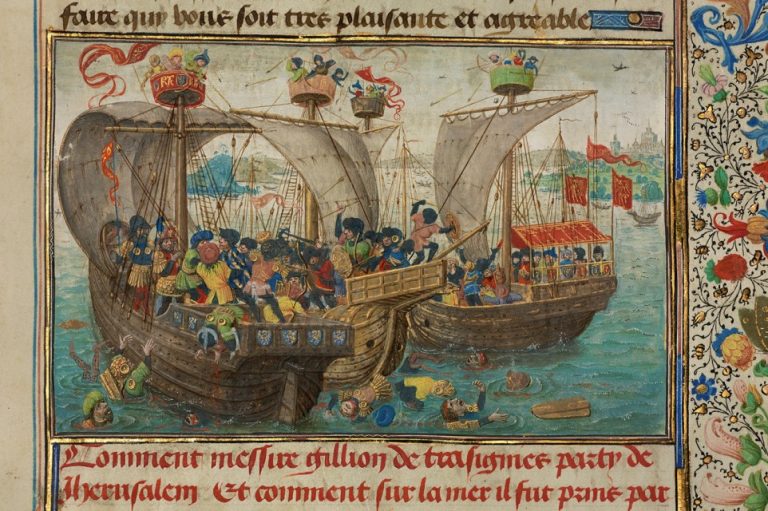 faire quy vous soit tres plaisante et agreable
Comment messire gillion de trasignies party de
Jherusalem Et comment sur la mer il fut prins par